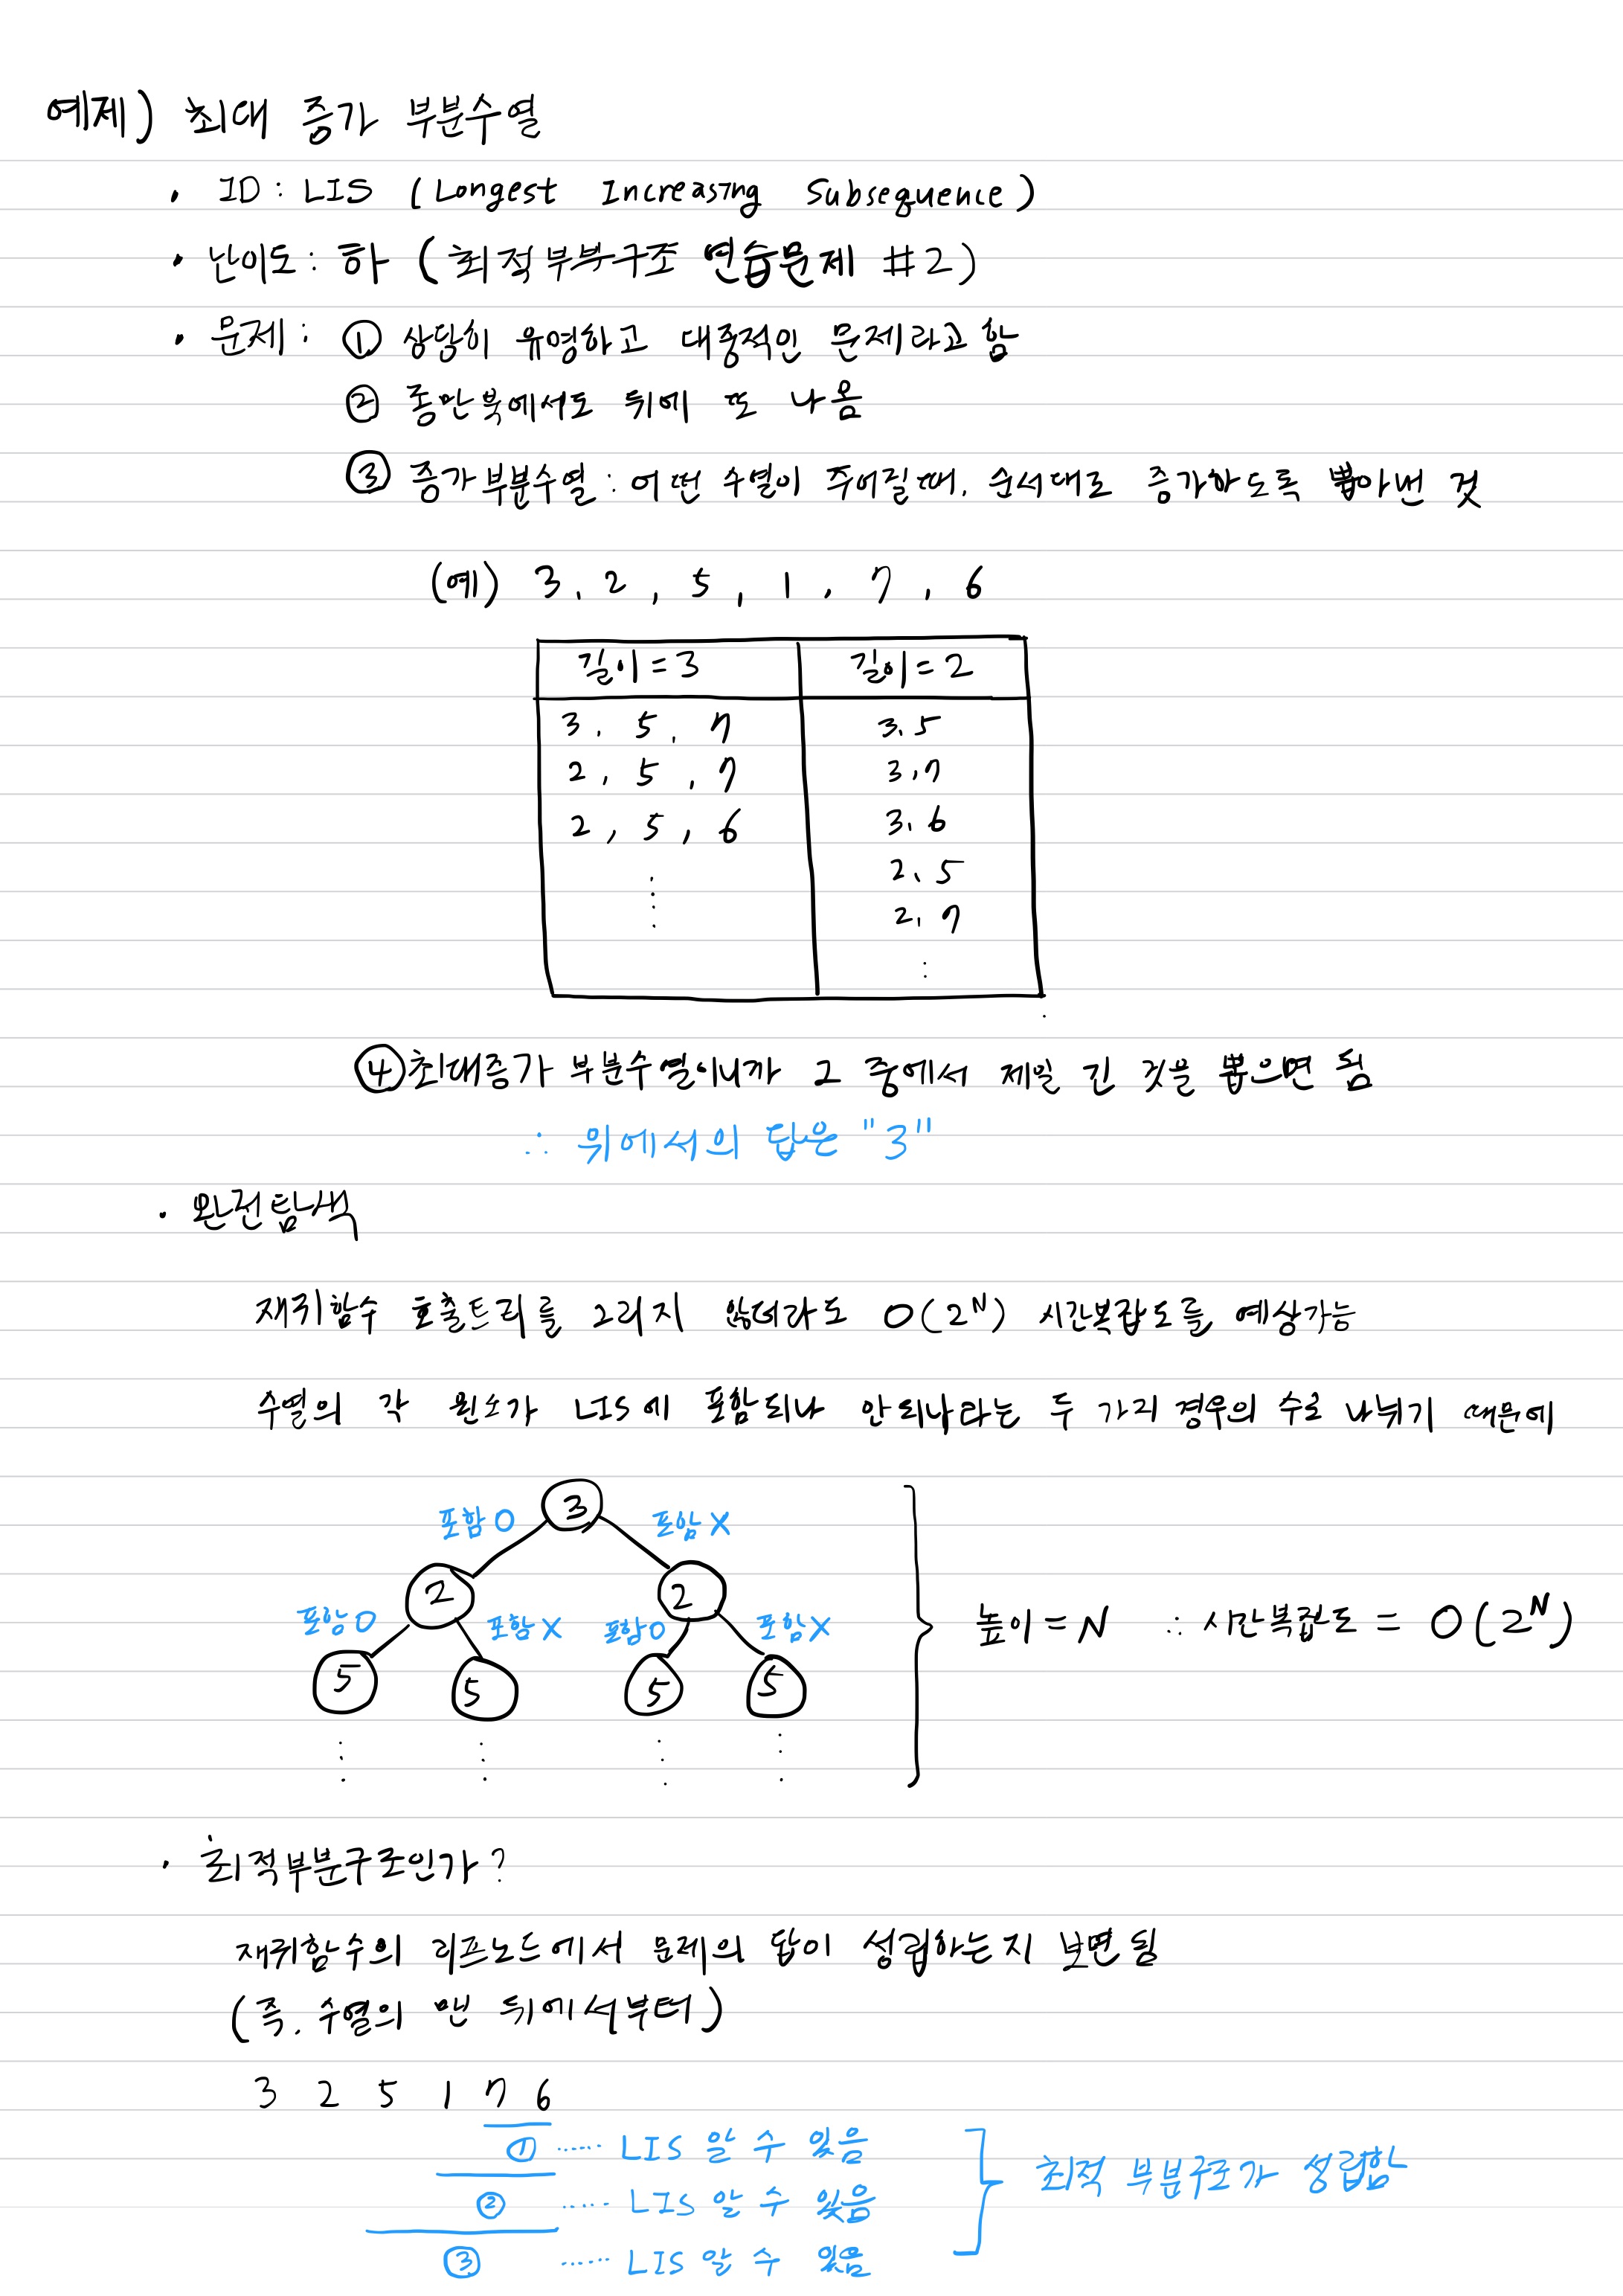 예제) 최대 증가 부분수열
· ID : LIS (Longest Increasing Subsequence)
· 난이도 : 하 (최적부분구조 연습문제 #2)
· 문제 : ① 상당히 유명하고 대중적인 문제라고 함
② 종만북에서도 뒤에 또 나옴
③ 증가부분수열 : 어떤 수열이 주어질때, 순서대로 증가하도록 뽑아낸 것
(예) 3, 2, 5, 1, 7, 6
길이=3 길이=2
3, 5, 7 3,5
2, 5, 7 3,7
2, 5, 6 3,6
2,5
2,7
④ 최대증가 부분수열이니까 그 중에서 제일 긴 것을 뽑으면 됨
∴ 위에서의 답은 "3"
· 완전탐색
재귀함수 호출트리를 그리지 않더라도 O(2^N) 시간복잡도를 예상가능
수열의 각 원소가 LIS에 포함되나 안되나라는 두 가지 경우의 수로 나뉘기 때문에
3
포함O 포함X
2 2
포함O 포함X 포함O 포함X
5 5 5 5
높이=N ∴ 시간복잡도 = O(2^N)
· 최적부분구조인가?
재귀함수의 리프노드에서 문제의 답이 성립하는지 보면 됨
(즉, 수열의 맨 뒤에서부터)
3 2 5 1 7 6
① ...... LIS 알 수 있음
② ...... LIS 알 수 있음
③ ...... LIS 알 수 있음
최적 부분구조가 성립함